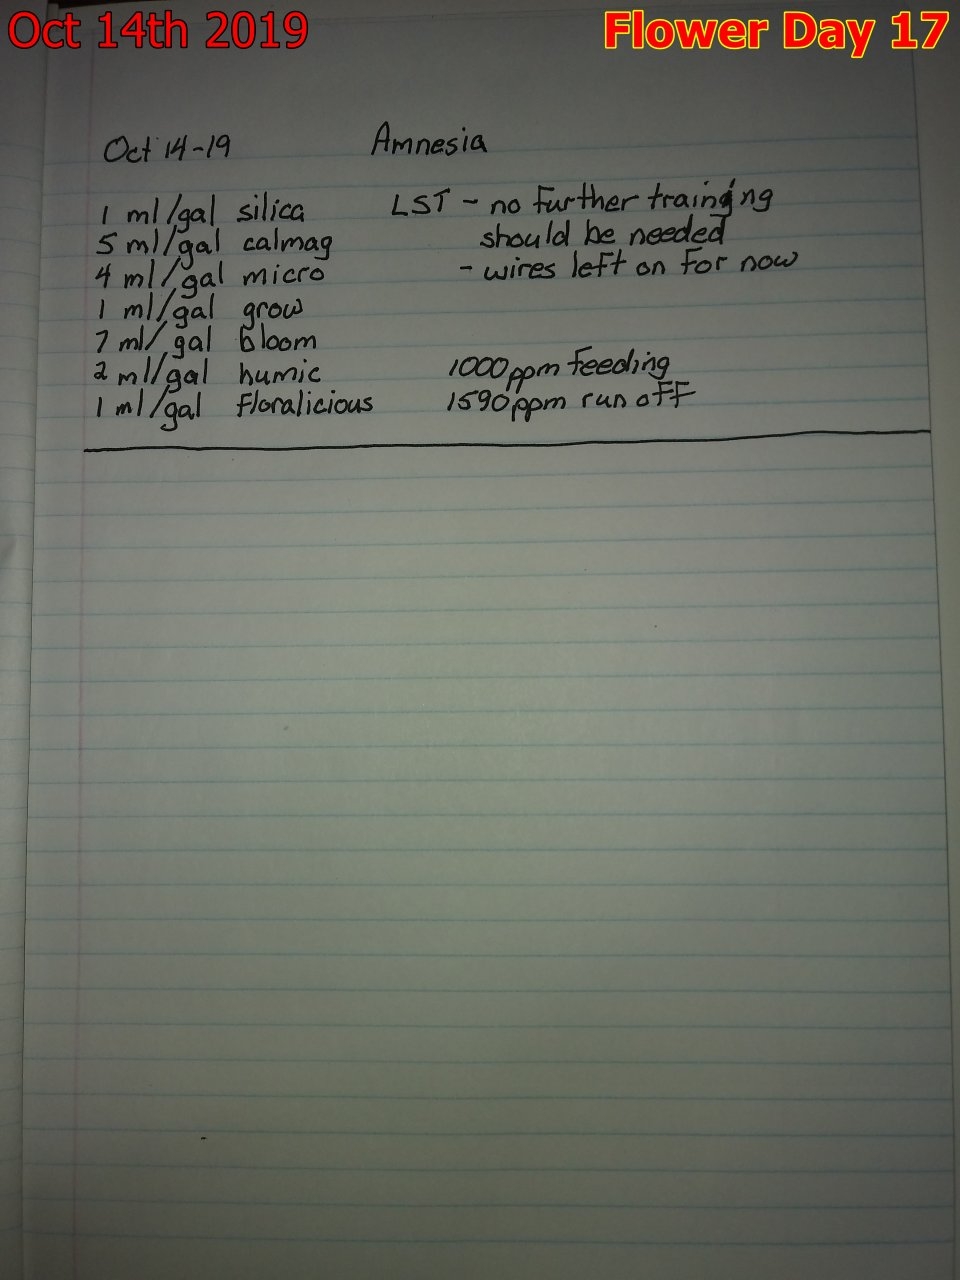 Oct 14th 2019
Flower Day 17
Oct 14-19
Amnesia
1 ml/gal silica
5 ml/gal calmag
4 ml/gal micro
1 ml/gal grow
7 ml/gal bloom
2 ml/gal humic
1 ml/gal floralicious
LST - no further training
should be needed
- wires left on for now
1000ppm feeding
1590ppm run off